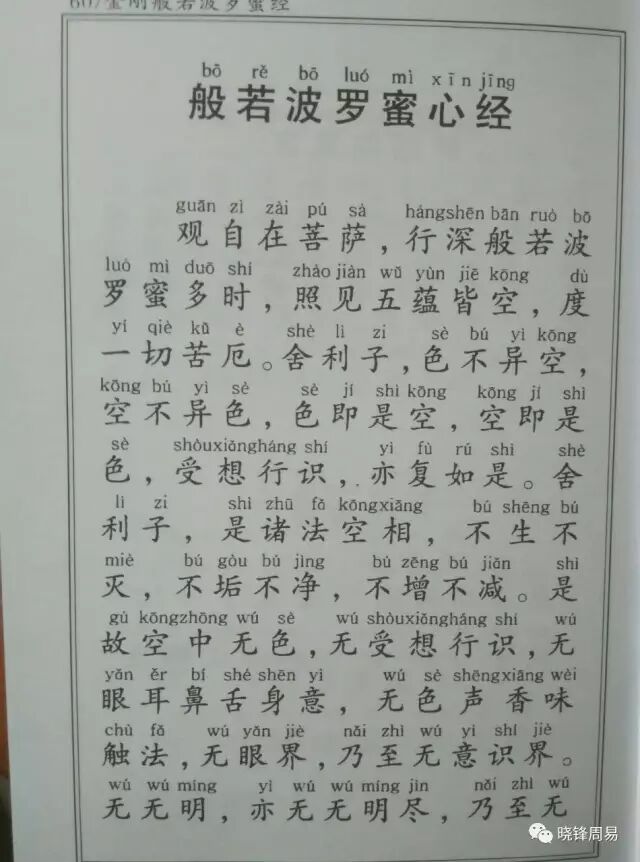 607金刚般若波罗蜜经
bō rě bō luó mì xīn jīng
般若波罗蜜心经
guān zì zài pú sà hángshēn bān ruò bō
观自在菩萨，行深般若波
luó mì duō shí zhào jiàn wǔ yùn jiē kōng dù
罗蜜多时，照见五蕴皆空，度
yí qiè kǔ è shè lì zi sè bú yì kōng
一切苦厄。舍利子，色不异空，
kōng bú yì sè sè jí shì kōng kōng jí shì
空不异色，色即是空，空即是
sè shòuxiǎngháng shí yì fù rú shì shè
色，受想行识，亦复如是。舍
lì zi shì zhū fǎ kōngxiāng bú shēng bú
利子，是诸法空相，不生不
miè bú gòu bú jìng bú zēng bú jiǎn shì
灭，不垢不净，不增不减。是
gù kōngzhōng wú sè wú shòuxiǎngháng shí wú
故空中无色，无受想行识，无
yǎn ěr bí shé shēn yì wú sè shēngxiāng wèi
眼耳鼻舌身意，无色声香味
chù fǎ wú yǎn jiè nǎi zhì wú yì shí jiè
触法，无眼界，乃至无意识界。
wú wú míng yì wú wú míng jìn nǎi zhì wú
无无明，亦无无明尽，乃至无
晓锋周易